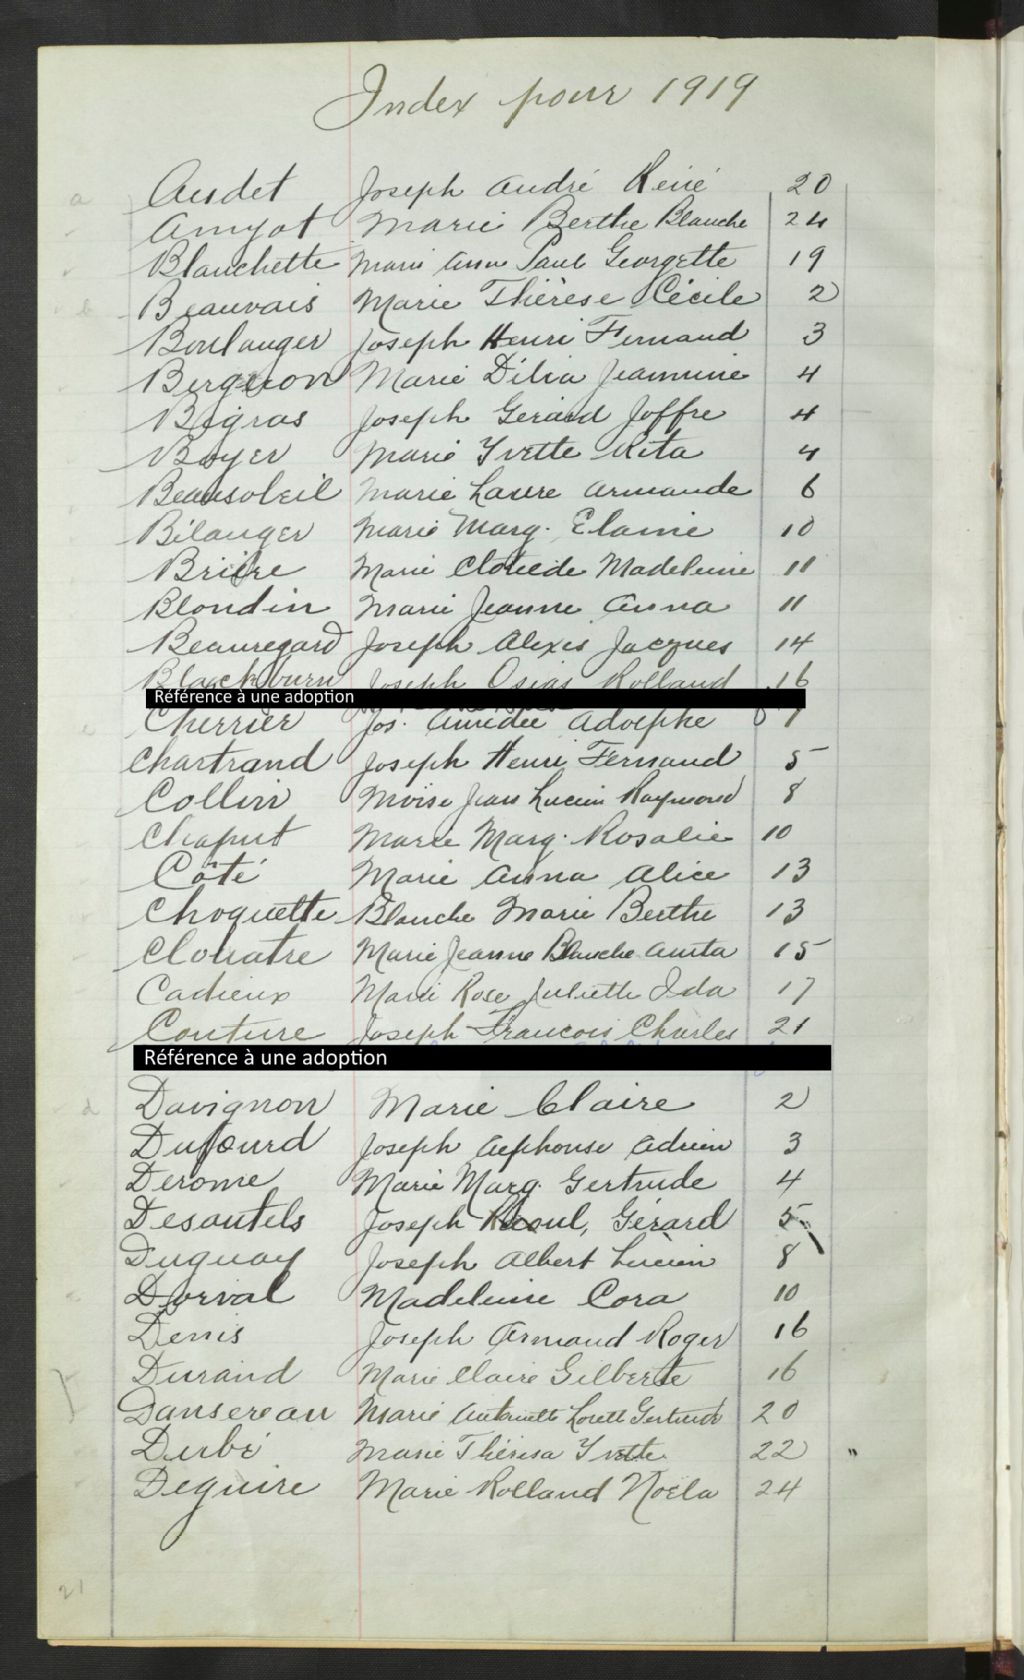 Index pour 1919
Audet Joseph André René 20
Amyot Marie Berthe Blanche 24
Blanchette Marie Anne Paul Georgette 19
Beauvais Marie Thérèse Cécile 2
Boulanger Joseph Henri Fernand 3
Bergeron Marie Délia Jeannine 4
Bigras Joseph Gérard Joffre 4
Boyer Marie Yvette Rita 4
Beausoleil Marie Laure Armande 6
Bélanger Marie Marg. Elaine 10
Brière Marie Clotilde Madeleine 11
Blondin Marie Jeanne Anna 11
Beauregard Joseph Alexis Jacques 14
Blackburn Joseph Osias Rolland 16
Référence à une adoption
Cherrier Jos. Amédée Adolphe 1
Chartrand Joseph Henri Fernand 5
Collin Moïse Jean Lucien Raymond 8
Chaput Marie Marg. Rosalie 10
Côté Marie Anna Alice 13
Choquette Blanche Marie Berthe 13
Clouatre Marie Jeanne Blanche Anita 15
Cadieux Marie Rose Juliette Ida 17
Couture Joseph Francois Charles 21
Référence à une adoption
Davignon Marie Claire 2
Dufourd Joseph Alphonse Adrien 3
Derome Marie Marg. Gertrude 4
Desautels Joseph Raoul, Gérard 5
Duguay Joseph Albert Lucien 8
Dorval Madeleine Cora 10
Denis Joseph Armand Roger 16
Durand Marie Claire Gilberte 16
Dansereau Marie Antoinette Gertrude 20
Dubé Marie Thérèsa Yvette 22
Deguire Marie Rolland Noëla 24
21